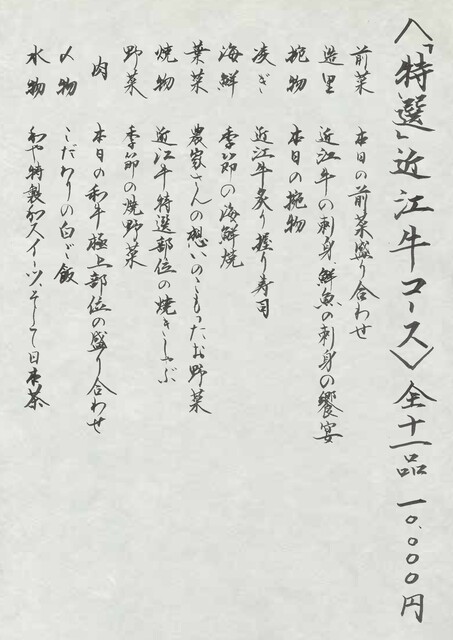 〈「特選」近江牛コース〉全十一品 一〇.〇〇〇円
前菜 本日の前菜盛り合わせ
造里 近江牛の刺身 鮮魚の刺身の饗宴
椀物 本日の椀物
凌ぎ 近江牛炙り握り寿司
海鮮 季節の海鮮焼
葉菜 農家さんの想いのこもったお野菜
焼物 近江牛特選部位の焼きしゃぶ
野菜 季節の焼野菜
肉 本日の和牛極上部位の盛り合わせ
人物 こだわりの白ご飯
水物 わや特製和スイーツ、そして日本茶